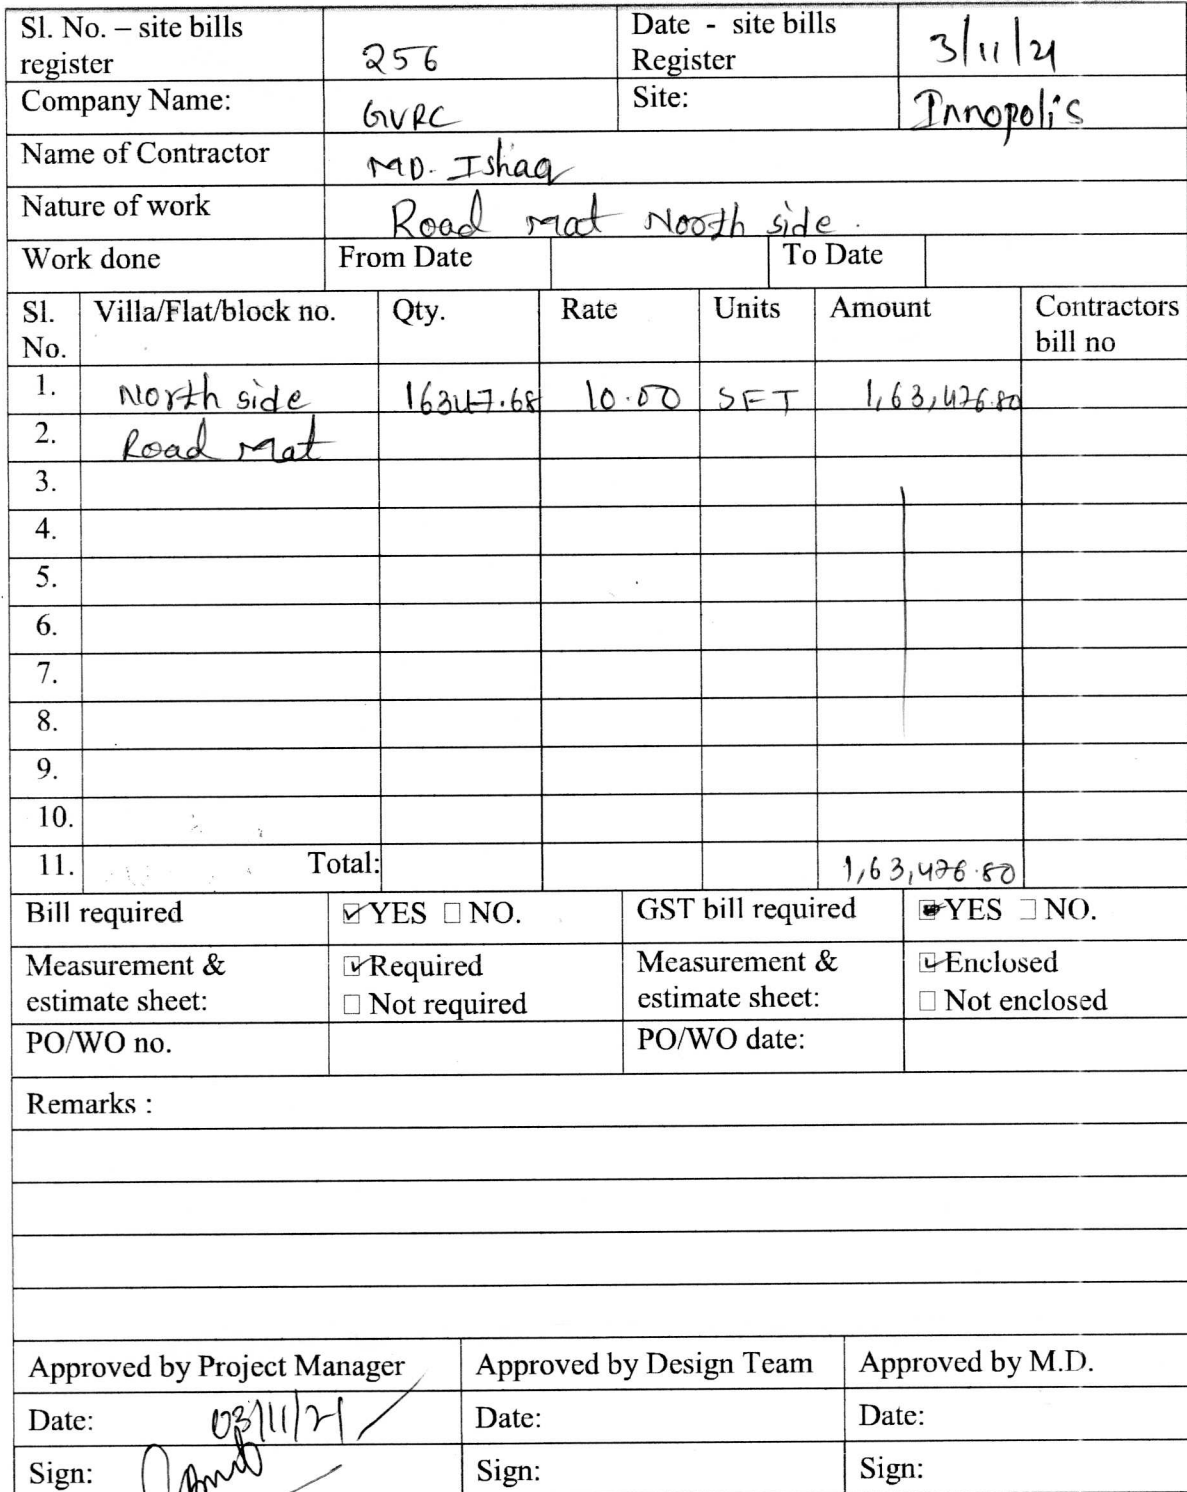 Sl. No. – site bills register 256 Date - site bills Register 3/11/21
Company Name: GVRC Site: Innopolis
Name of Contractor MD. Ishaq
Nature of work Road Mat Noorth side.
Work done From Date To Date
Sl. No. Villa/Flat/block no. Qty. Rate Units Amount Contractors bill no
1. North side 16347.68 10.00 SFT 1,63,476.80
2. Road Mat
3.
4.
5.
6.
7.
8.
9.
10.
11. Total: 1,63,476.80
Bill required ☑YES ☐NO. GST bill required ☑YES ☐NO.
Measurement & estimate sheet: ☑Required ☐ Not required Measurement & estimate sheet: ☑Enclosed ☐ Not enclosed
PO/WO no. PO/WO date:
Remarks :
Approved by Project Manager Approved by Design Team Approved by M.D.
Date: 03/11/21 Date: Date:
Sign: Sign: Sign: